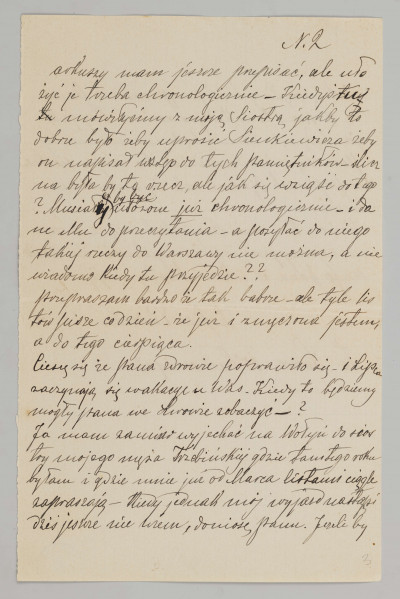 N. 2
arkuszy mam jeszcze przepisać, ale uło
żyć je trzeba chronologicznie – Kiedyś tu
mówiłyśmy z moją Siostrą jakby to
dobrze było żeby uprosić Sienkiewicza żeby
on napisał wstęp do tych Pamiętników – ślicz
na byłaby to rzecz, ale jak się wziąść do tego
? Musiałyby być ułożone już chronologicznie – i da
ne Mu do przeczytania – a posyłać do niego
takiej rzeczy do Warszawy nie można, a nie
wiadomo kiedy tu przyjedzie??
Przepraszam bardzo że tak babrzę – ale tyle lis
tów piszę codzień – że już i zmęczona jestem,
a do tego cierpiąca.
Cieszę się że Pana zdrowie poprawiło się – i Lipca
zaczynają się wakacye u Was. Kiedy to będziemy
mogły Pana we Lwowie zobaczyć – ?
Ja mam zamiar wyjechać na Wołyń do sios
try mojego męża gdzie tamtego roku
byłam i gdzie mnie już od Marca listami ciągle
zapraszają – Kiedy jednak mój wyjazd nastąpi
dziś jeszcze nie wiem, doniosę Panu. Jeśli by
3